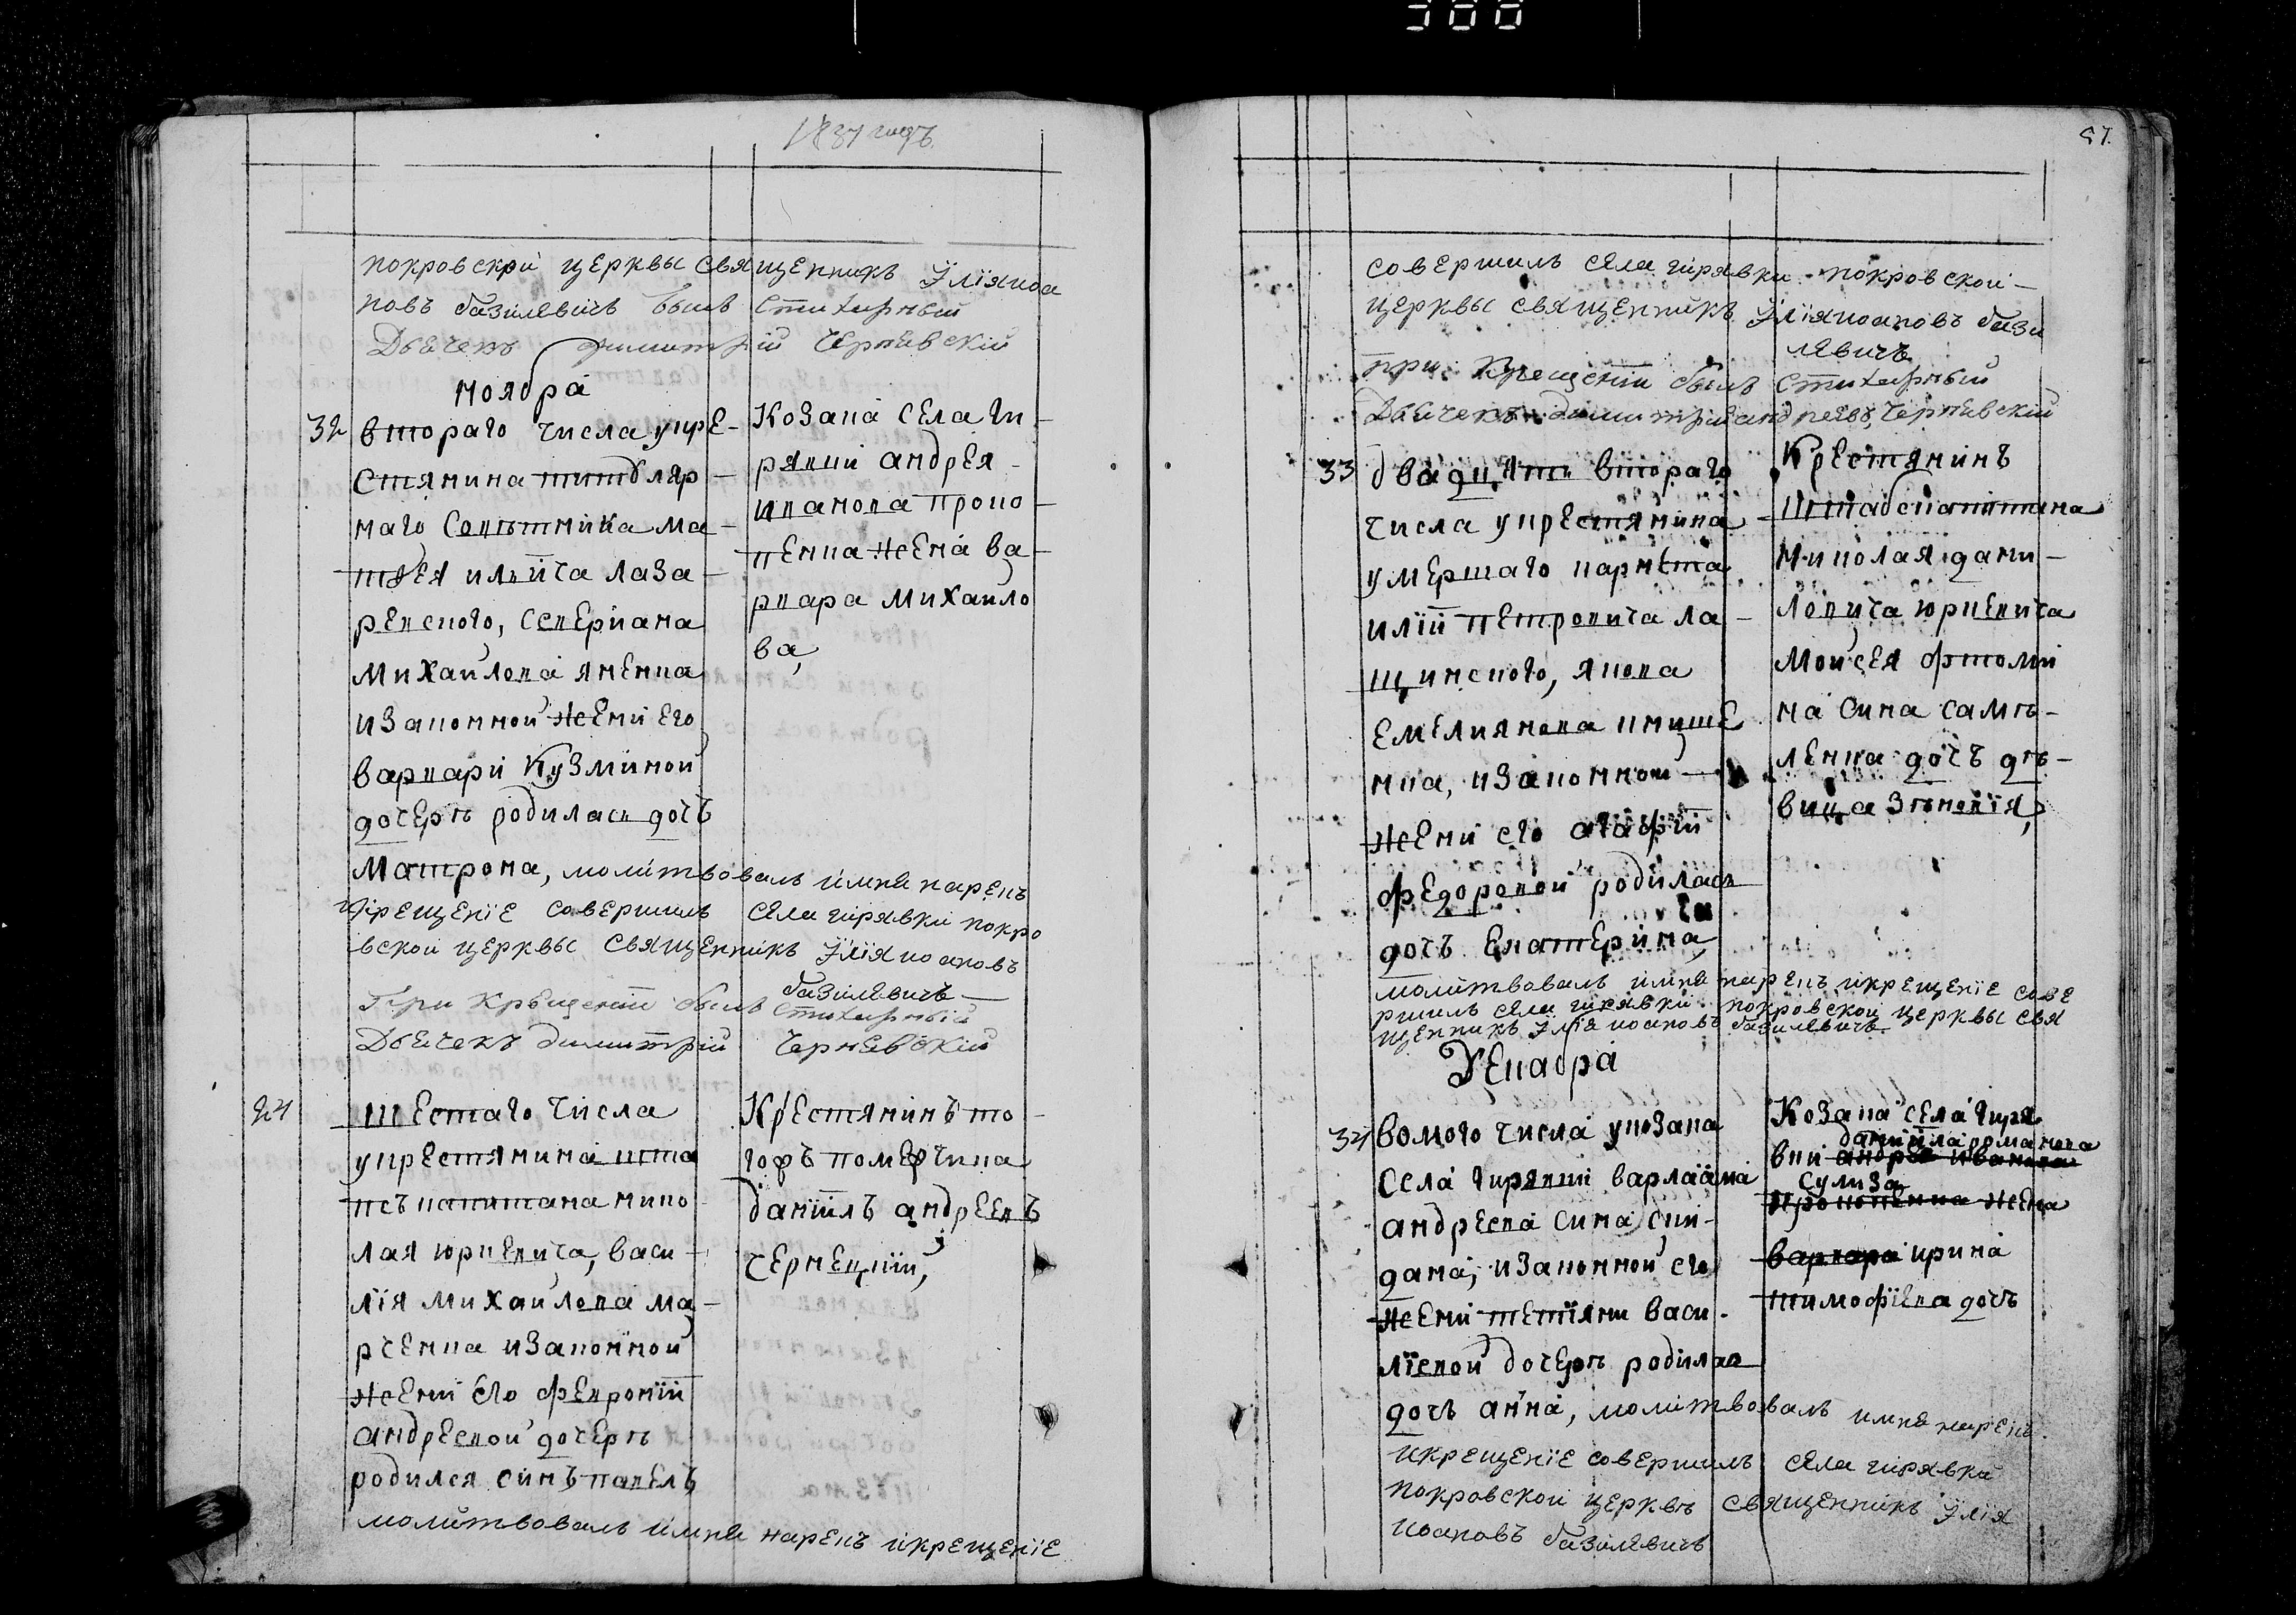 1837 годъ
покровской церквы священникъ Ілія иоа
новъ базилевичъ былъ стихарный
Дьячекъ димитрій Чернѣвскій
ноября
32 втораго числа укре-
стянина титуляр-
наго советника ма-
твѣя ильича лаза-
ревского, северіана
михаилова яненка
изаконной жени его
варвари кузминой
дочерѣ родилась дочъ
матрона, молитвовалъ имя нарекъ
икрещеніе совершилъ села гирявки покро
вской церквы священникъ Ілія иоановъ
базилевичъ
При крещеніи былъ стихарный
Дьячекъ димитрій Чернявскій
козака села ги-
рявки андрея
иванова проко-
пенка жена ва-
рвара михаило
ва,
24 шестаго числа
укрестянина шта
псъкапитана нико
лая юркевича, васи-
лія михаилова ма-
рченка изаконной
жени его февроніи
андреевой дочерѣ
родился синъ павелъ
молитвовалъ имя нарекъ икрещеніе
крестянинъ то-
гофъ померчика
даніилъ андреевъ
чернецкій,
57.
совершилъ села гирявки покровской
церквы священникъ Ілія иоановъ бази
левичъ
при крещеніи былъ стихарный
Дьячекъ димитрій андреевъ Чернѣвскій
33 двадцять втораго
числа укрестянина
умершаго карнета
иліи петровича ла-
щинского, якова
емелиянова книше
нка, изаконной
жени его агафіи
федоровой родилась
дочъ екатерина
молитвовалъ имя нарекъ икрещеніе сове
ршилъ села гирявки покровской церквы свя
щенникъ Ілія иоановъ базилевичъ
крестянинъ
штабскапитана
николая дани-
ловича юркевича
моисея
на сина самъ-
ленка дочъ дѣ-
вица зѣновія,
Декабра
34 вомого числа укозака
села гирявки варлаама
андреева сина
дана, изаконной его
жени тетіяни васи-
ліевой дочерѣ родилас
дочъ анна, молитвовалъ имя нарекъ
икрещеніе совершилъ села гирявки
покровской церквѣ священникъ Ілія
иоановъ базилевичъ
козака села гиря
даніила романова
вки андрея иванова
сулиза
прокопенка жена
варвара ирина
тимофіева дочъ